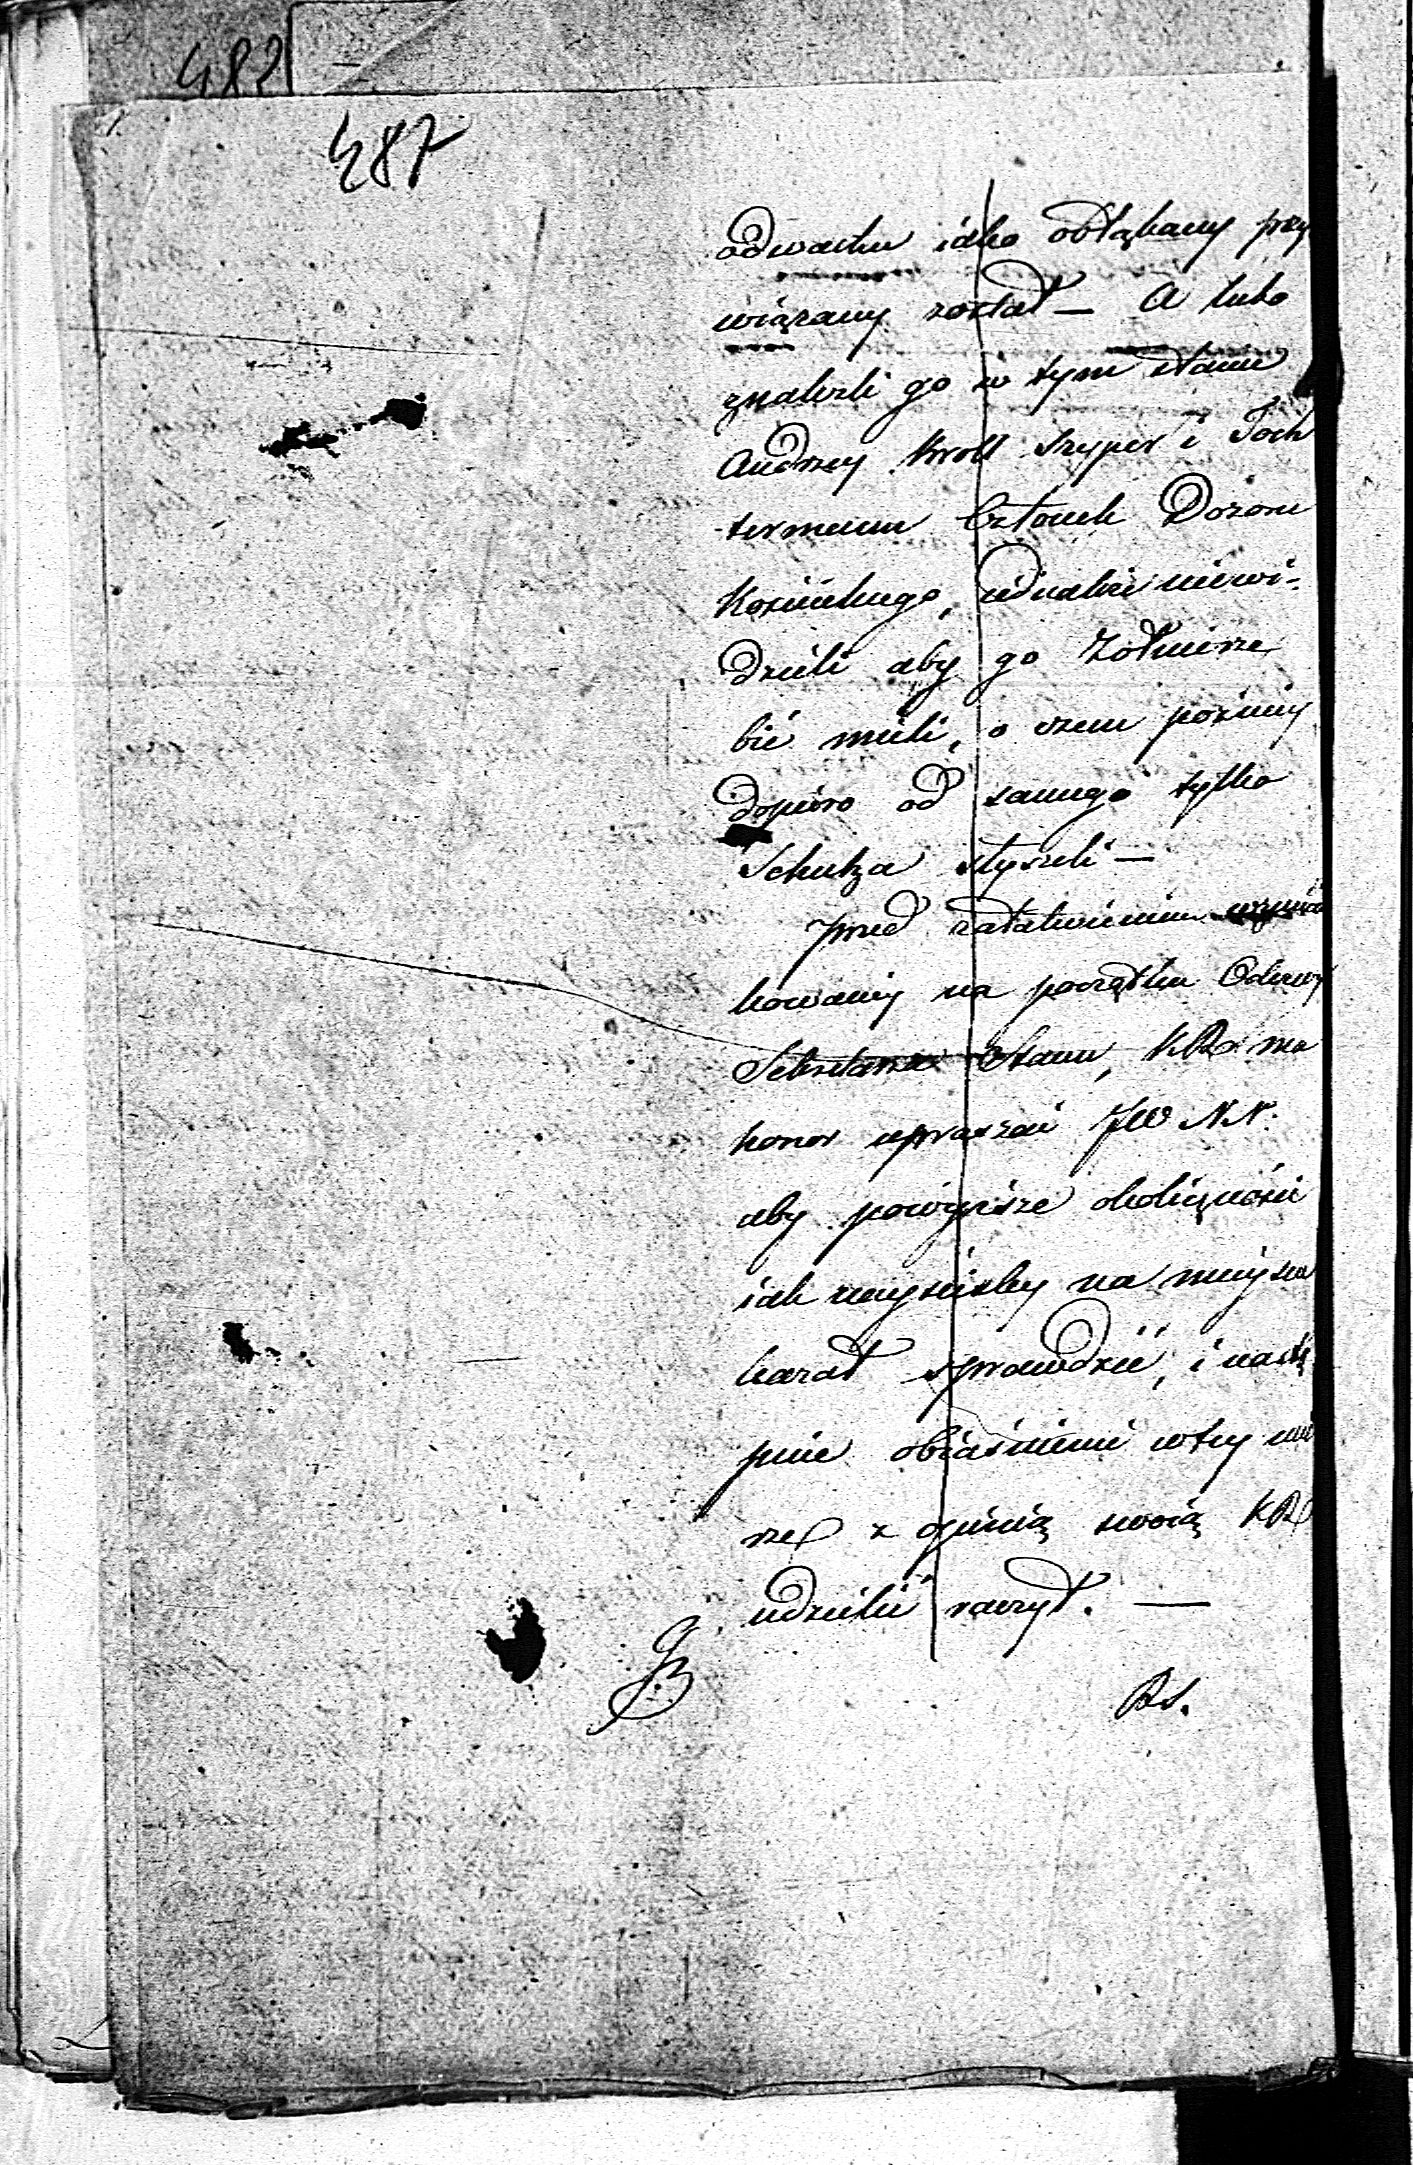 482
487
odwachu iako obłąkany przy
wiązany został — A lubo
znalezli go w tym stanie
Andrzey Kroll Szyper i Joch
termann Członek Dozoru
Kościelnego, iednakże niewi-
dzieli aby go Żołnierze
bić mieli, o czem pozniey
dopiero od samego tylko
Schultza słyszeli —
Przed załatwieniem
kowaney na początku Odezwy
Sekretarza Stanu, KR ma
honor upraszać JW NN.
aby powyższe okoliczności
iak nayściśley na mieyscu
kazał sprawdzić, i nastę
pnie obiaśnienie wtey mie
rze z opinią swoią KR
udzielić raczył. —
RS.